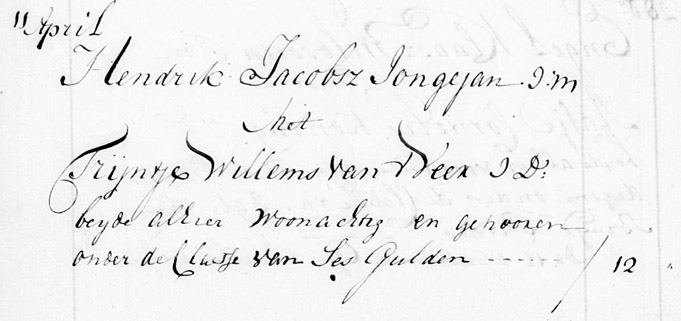 11 April
Hendrik Jacobsz Jongejan J:m
Met
Trijntje Willems van Weer J D:
beyde alhier Woonachtig en gebooren
onder de Classe van Ses Gulden ----- / 12 "